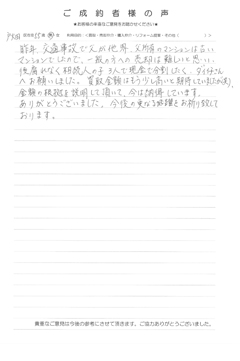 ご成約者様の声
★お客様の率直なご意見をお聞かせください★
昨年、交通事故で父が他界。父所有のマンションは古い
マンションでしたので、一般の方への売却は難しいと思い、
後腐れなく相続人の子3人で現金で分割したく、ダイチさん
へお願いしました。買取金額はもう少し高いと期待していましたが(笑)、
金額の根拠を説明して頂いて、今は納得しています。
ありがとうございました。今後の更なる御躍進をお祈り致して
おります。
貴重なご意見は今後の参考にさせて頂きます。ご協力ありがとうございました。